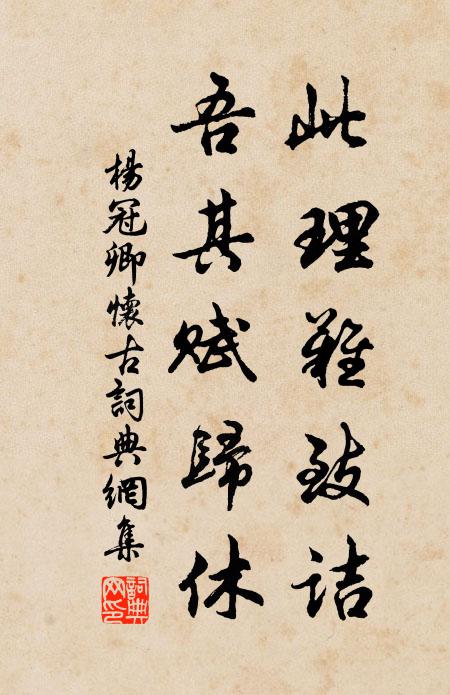 此理難致詰
吾其賦歸休
楊冠卿懷古詞典網集
詞典網印